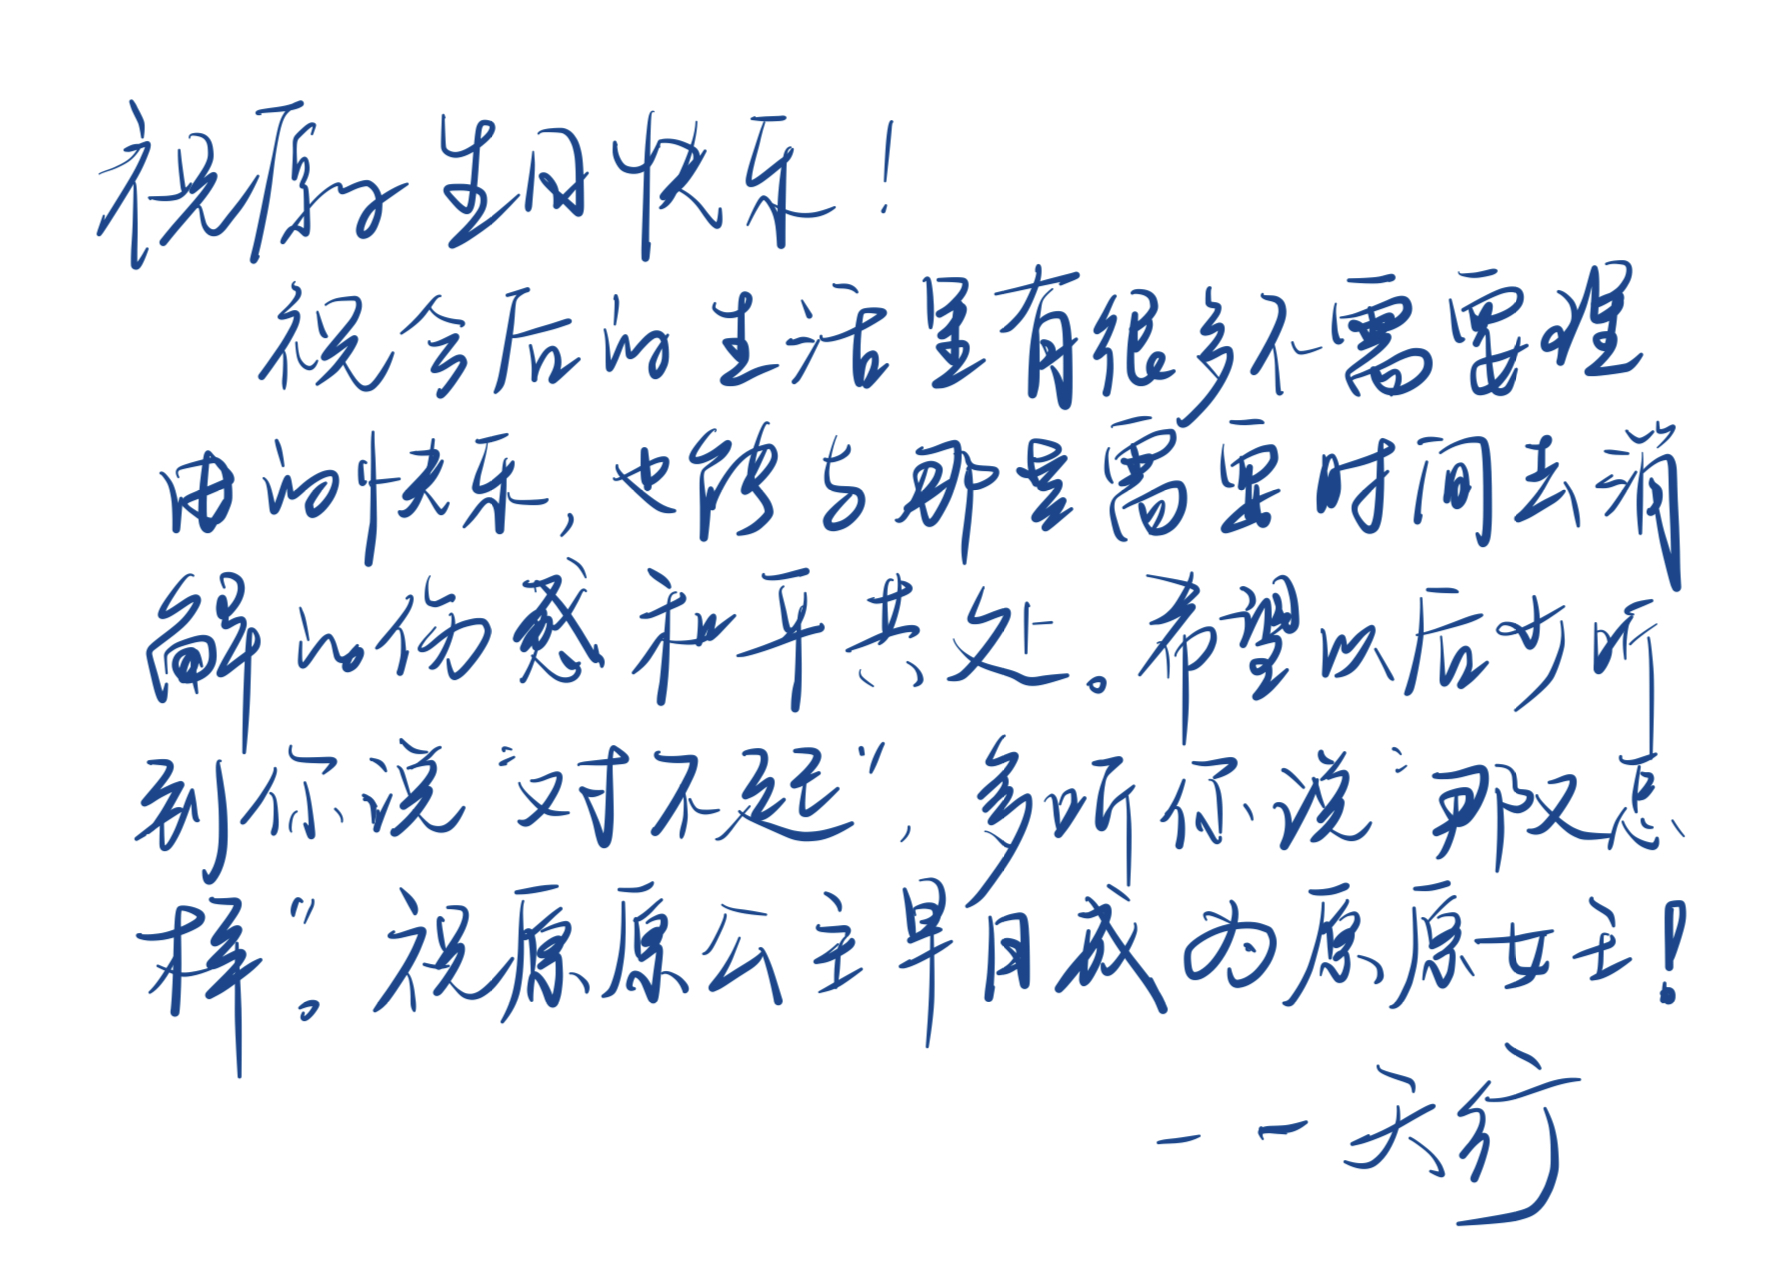 祝原原生日快乐！
祝今后的生活里有很多不需要理
由的快乐，也能与那些需要时间去消
解的伤感和平共处。希望以后少听
到你说“对不起”，多听你说“那又怎
样”。祝原原公主早日成为原原女王！
——天行